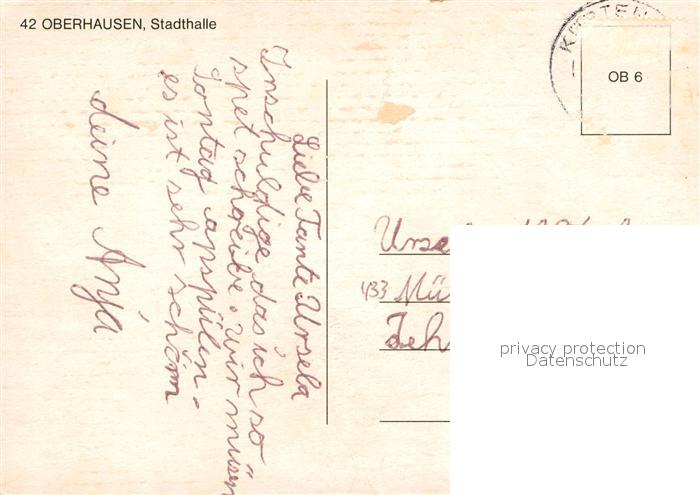 42 OBERHAUSEN, Stadthalle
OB 6
Liebe Tante Ursela
Inschuldige das ich so
spet schreibe. wir müsen
Sontag anspülen.
es ist sehr schöm
deine Anja
Urse
433 Mü
Zeh
privacy protection
Datenschutz